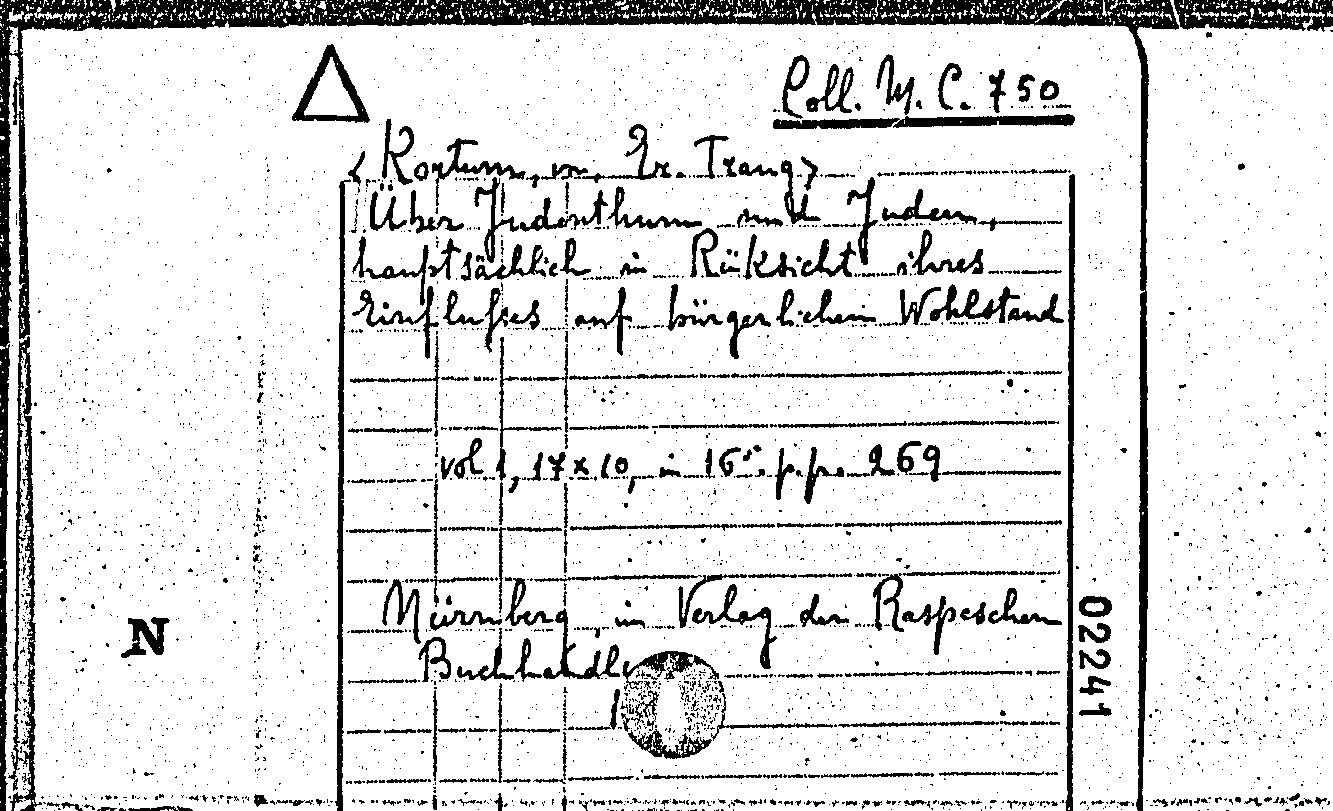 Coll. M. C. 750
< Kortum, von, Er. Trang>
Über Judenthum und Juden,
hauptsächlich in Rüksicht ihres
Einflußes auf bürgerlichen Wohlstand
vol 1, 17x10, in 16°. p.p. 269
Nürnberg, im Verlag der Raspeschen
N
02241